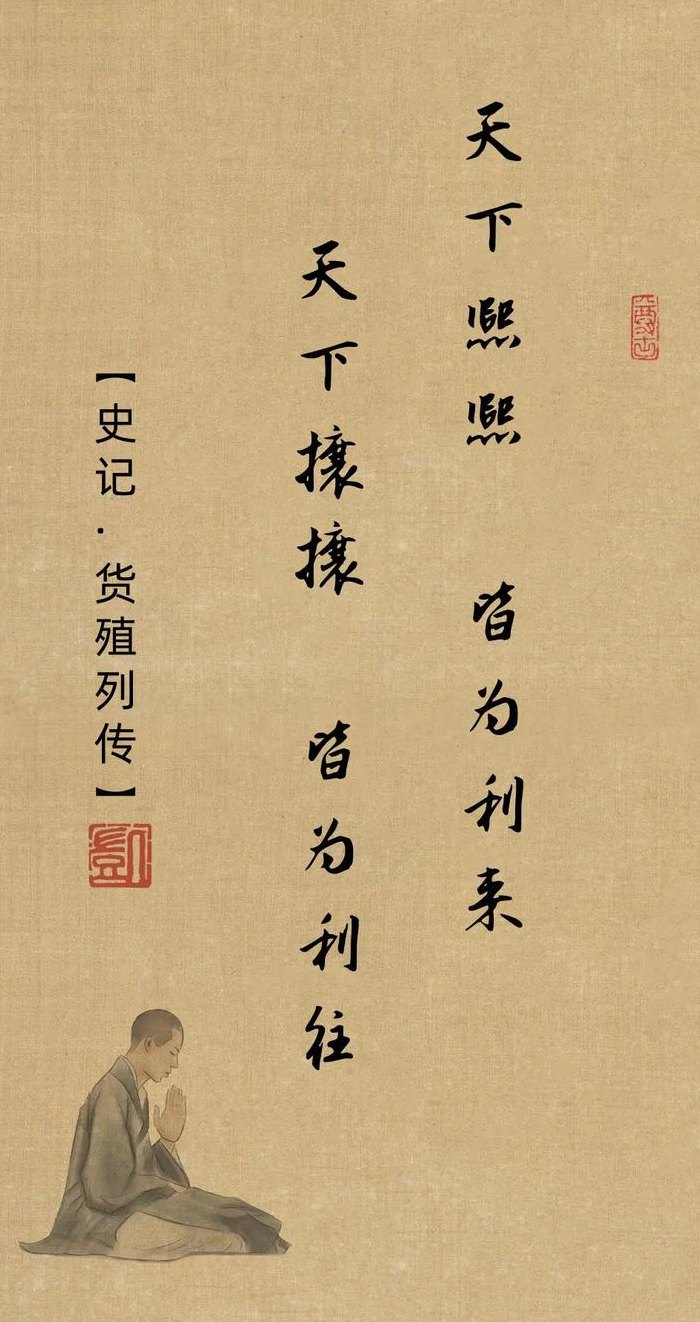 天下熙熙 皆为利来
天下攘攘 皆为利往
【史记·货殖列传】